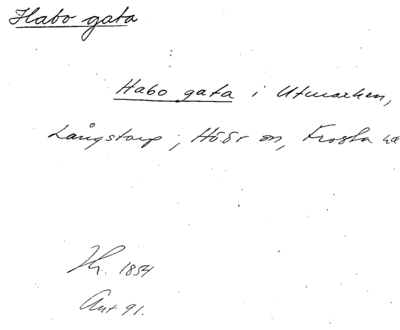 Habo gata
Habo gata i Utmarken,
Långstorp, Höör sn, Frosta hd
Hr. 1854
Ant 91.